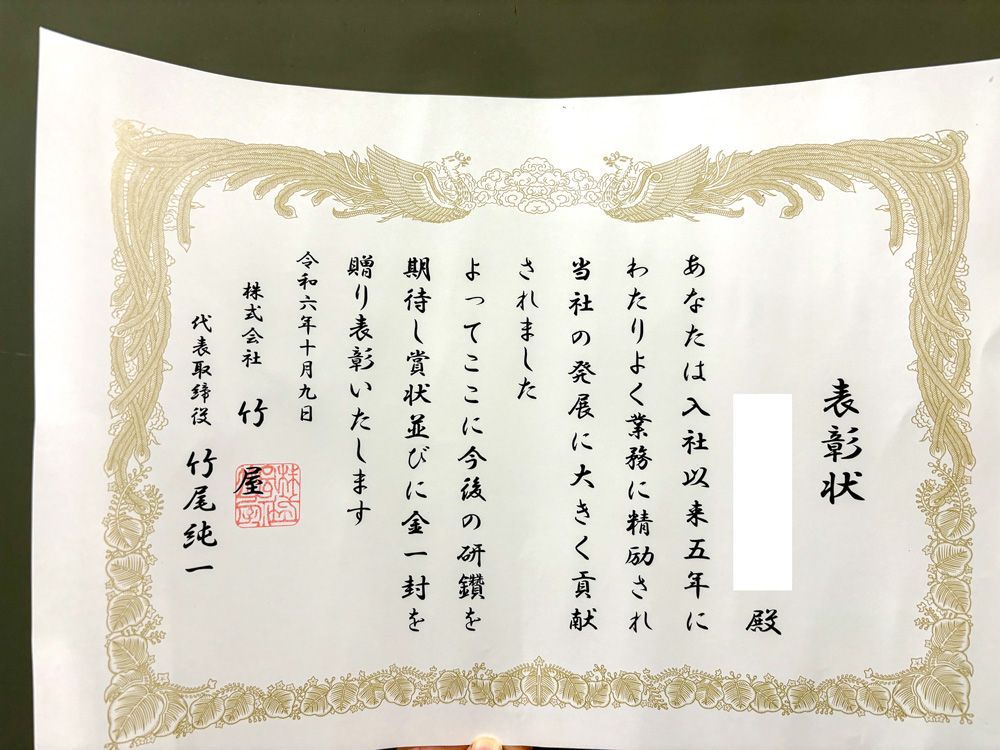 表彰状
殿
あなたは入社以来五年に
わたりよく業務に精励され
当社の発展に大きく貢献
されました
よってここに今後の研鑽を
期待し賞状並びに金一封を
贈り表彰いたします
令和六年十月九日
株式会社 竹屋
代表取締役 竹尾純一